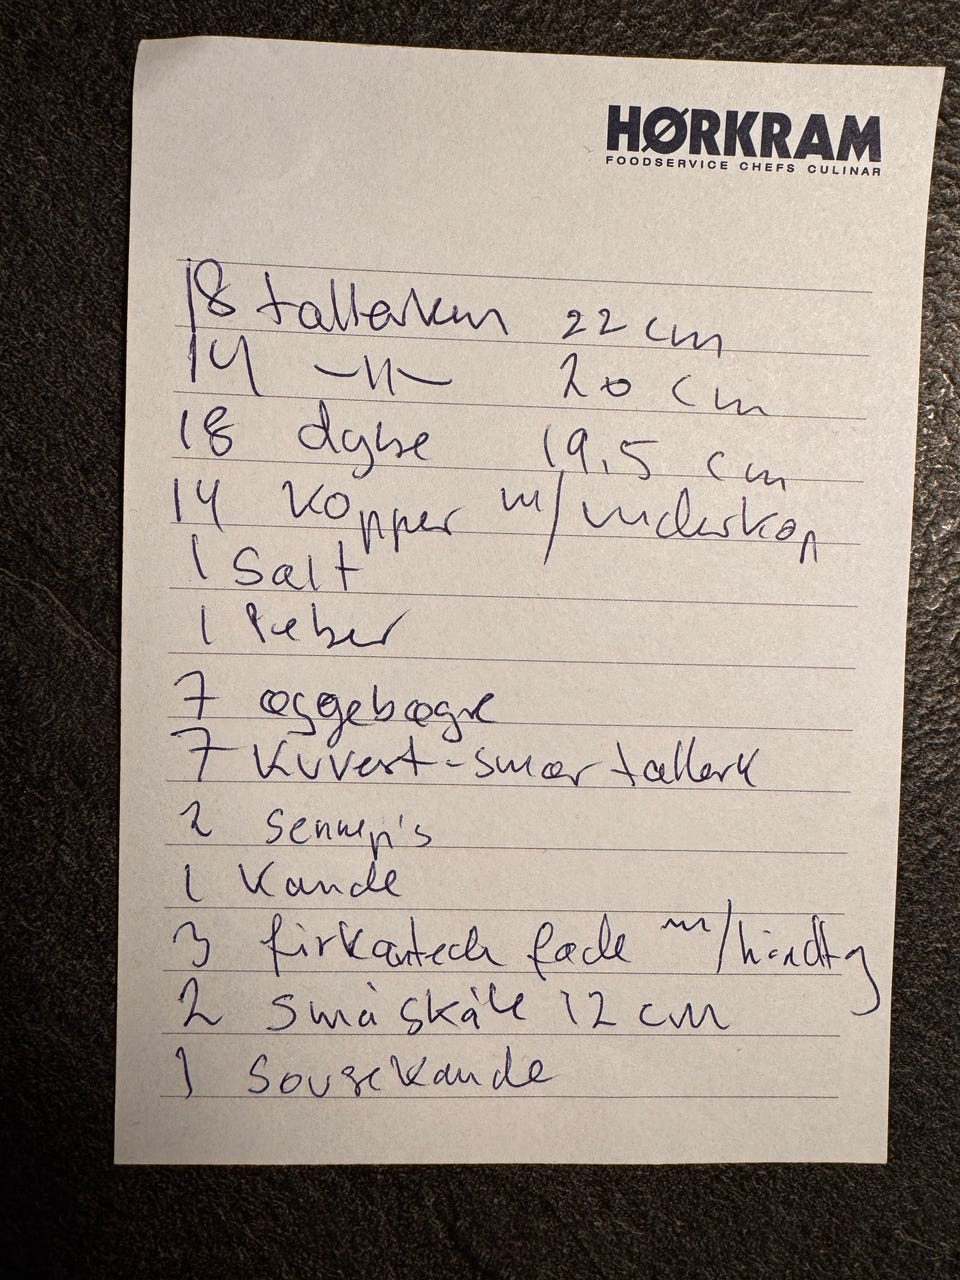 HØRKRAM
FOODSERVICE CHEFS CULINAR
18 tallerken 22 cm
14 -11- 20 cm
18 dybe 19,5 cm
14 kopper m/underkop
1 Salt
1 Peber
7 æggebægre
7 Kuvert-smør tallerk
2 Sennep's
1 Kande
3 firkantede fade m/håndtg
2 små skåle 12 cm
1 Sovsekande